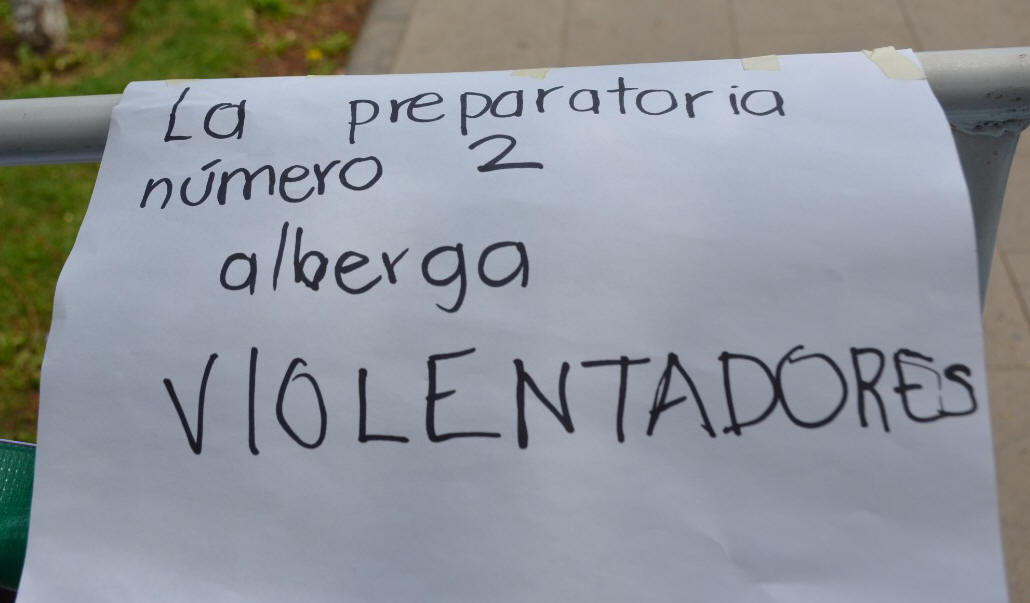 La preparatoria
número 2
alberga
VIOLENTADORES